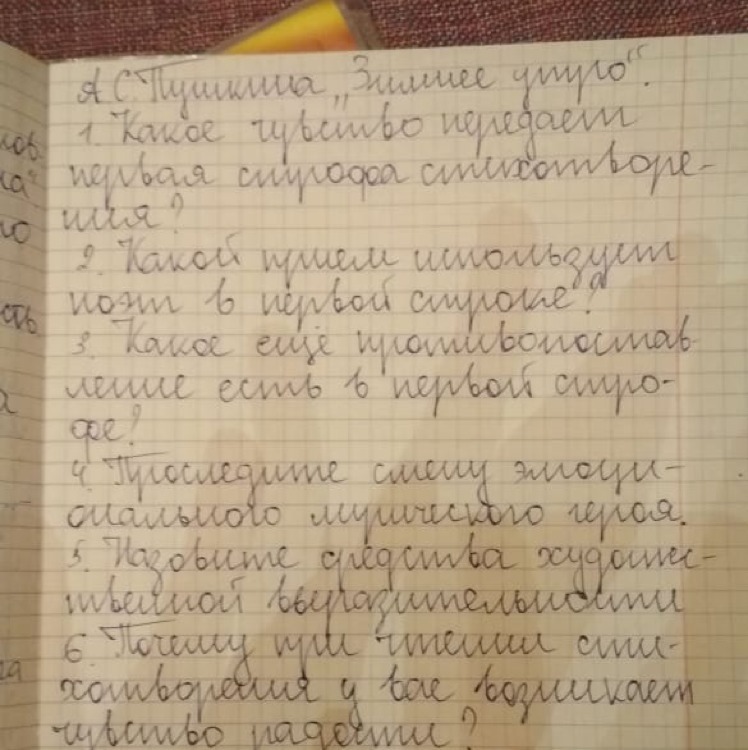 А.С.Пушкина „Зимнее утро".
1. Какое чувство передает
первая строфа стихотворе-
ния?
2. Какой прием использует
поэт в первой строке?
3. Какое ещё противопостав
ление есть в первой стро-
фе?
4. Проследите смену эмоци-
онального лирического героя.
5. Назовите средства художес-
твенной выразительности
6. Почему при чтении сти-
хотворения у вас возникает
чувство радости?